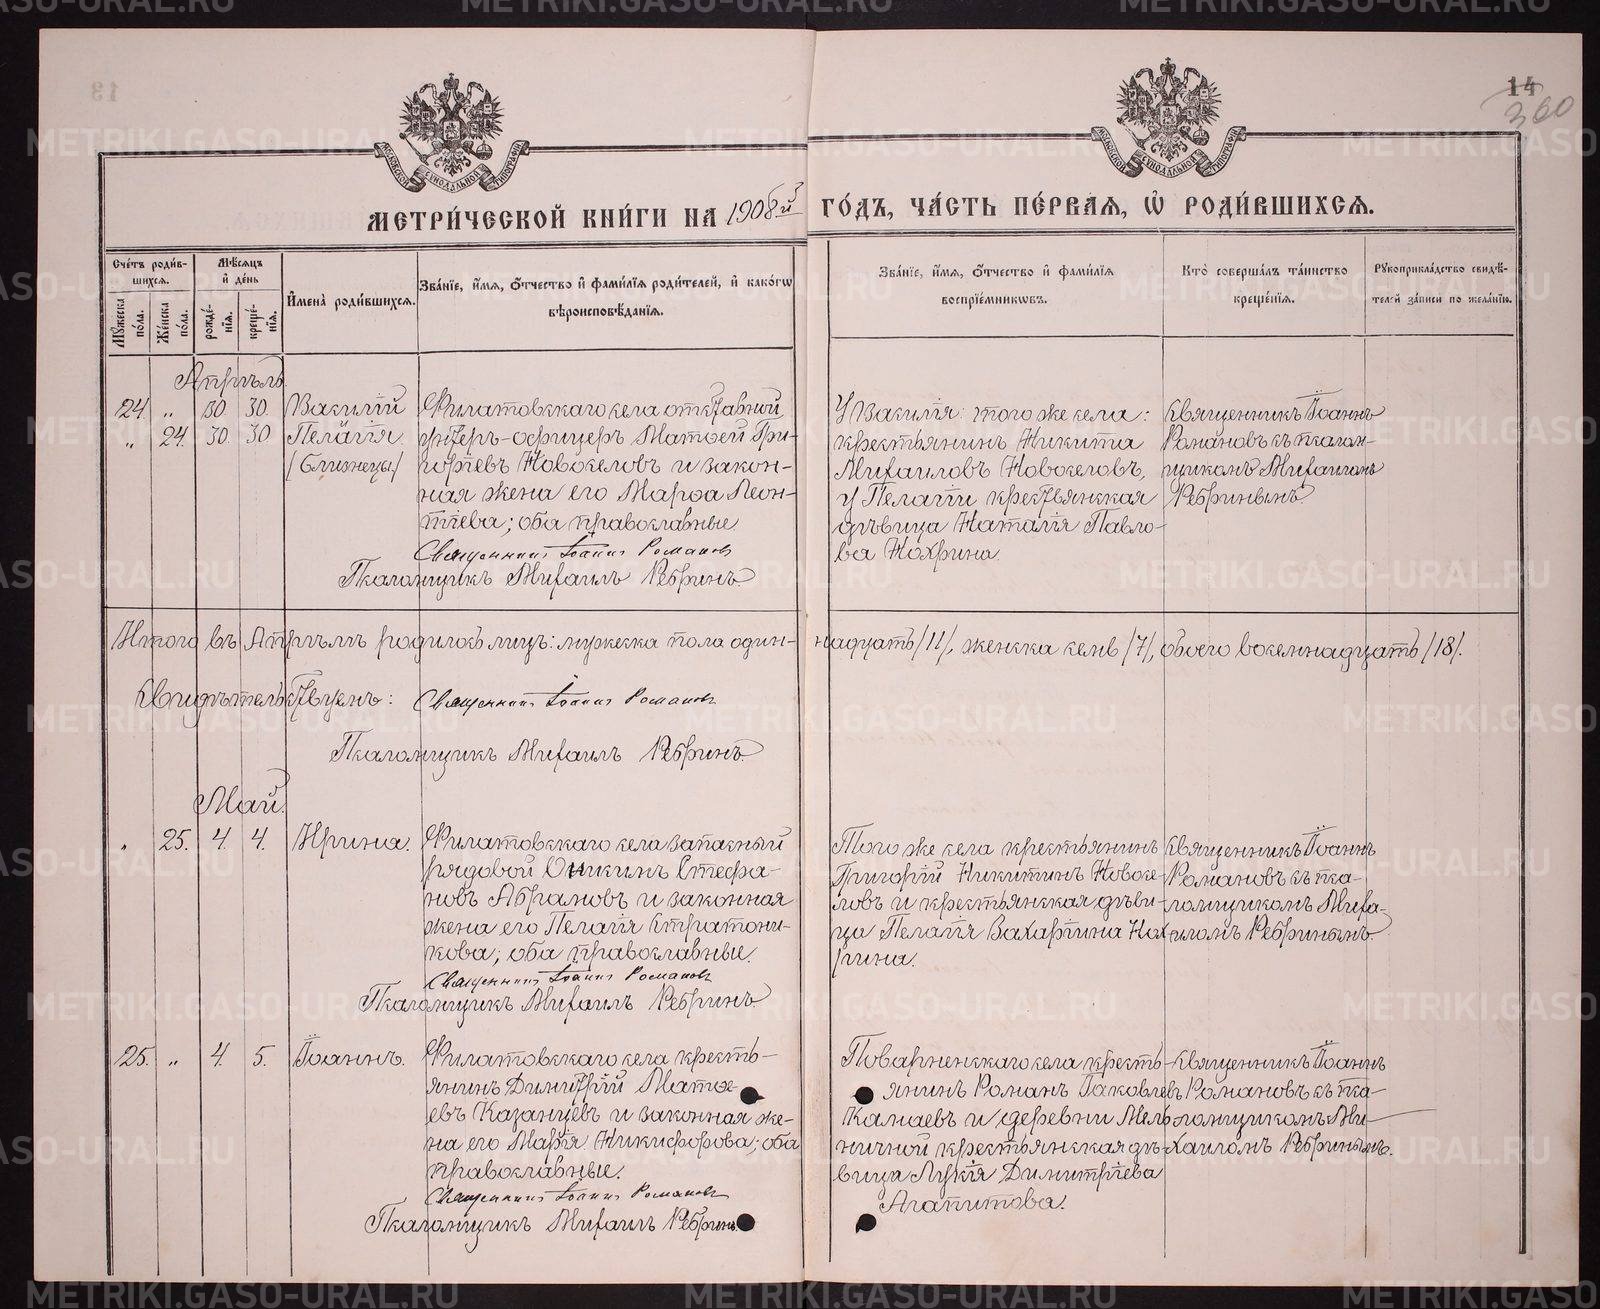 14
360
МЕТРИ́ЧЕСКОЙ КНИ́ГИ НА 1908й ГО́ДЪ, ЧА́СТЬ ПЕ́РВАЯ, Ѡ РОДИ́ВШИХСЯ.
Сче́тъ роди́в-шихся.
Му́жеска по́ла.
Же́нска по́ла.
Мѣ́сяцъ и҆ де́нь
рожде́-нїя.
креще́-нїя.
И҆мена̀ роди́вшихся.
Зва́нїе, и҆́мя, ѻ҆́тчество и҆ фами́лїя роди́телей, и҆ како́гѡ
вѣроисповѣ́данїя.
Зва́нїе, и҆́мя, ѻ҆́тчество и҆ фами́лїя
воспрїе́мникѡвъ.
Кто̀ соверша́лъ та́инство
креще́нїя.
Рꙋкоприкла́дство свидѣ́-
телей за́писи по жела́нїю.
Апрѣль.
24. „ 30. 30. Василій
„ 24. 30. 30 Пелагія.
/близнецы/
Филатовскаго села отставной
унтеръ-офицеръ Матѳей Гри-
горьевъ Новоселовъ и закон-
ная жена его Марѳа Леон-
тіева; оба православные.
Священникъ Іоаннъ Романовъ
Псаломщикъ Михаилъ Ребринъ.
У Василія: того же села:
крестьянинъ Никита
Михаиловъ Новоселовъ,
у Пелагіи крестьянская
дѣвица Наталія Павло-
ва Кохрина.
Священникъ Іоаннъ
Романовъ съ псалом-
щикомъ Михаиломъ
Ребринымъ.
Итого въ Апрѣлѣ родилось лицъ: мужеска пола один-надцать /11/, женска семь /7/, обоего восемнадцать /18/.
Свидѣтельствуемъ: Священникъ Іоаннъ Романовъ
Псаломщикъ Михаилъ Ребринъ.
Май.
„ 25. 4. 4. Ирина.
Филатовскаго села запасный
рядовой Стефа-
новъ Абрамовъ и законная
жена его Пелагія Стратони-
кова; оба православные.
Священникъ Іоаннъ Романовъ
Псаломщикъ Михаилъ Ребринъ.
Того же села крестьянинъ
Григорій Никитинъ Новосе-
ловъ и крестьянская дѣви-
ца Пелагія Захарьина Кох-
рина.
Священникъ Іоаннъ
Романовъ съ пса-
ломщикомъ Миха-
иломъ Ребринымъ.
25. „ 4. 5. Іоаннъ.
Филатовскаго села кресть-
янинъ Димитрій Матѳе-
евъ Казанцевъ и законная же-
на его Марія Никифорова; оба
православные.
Священникъ Іоаннъ Романовъ
Псаломщикъ Михаилъ Ребринъ.
Поварненскаго села кресть-
янинъ Романъ Іаковлевъ
Камаевъ и деревни Мель-
ничной крестьянская дѣ-
вица Лукія Димитріева
Агапитова.
Священникъ Іоаннъ
Романовъ съ пса-
ломщикомъ Ми-
хаиломъ Ребринымъ.
METRIKI.GASO-URAL.RU